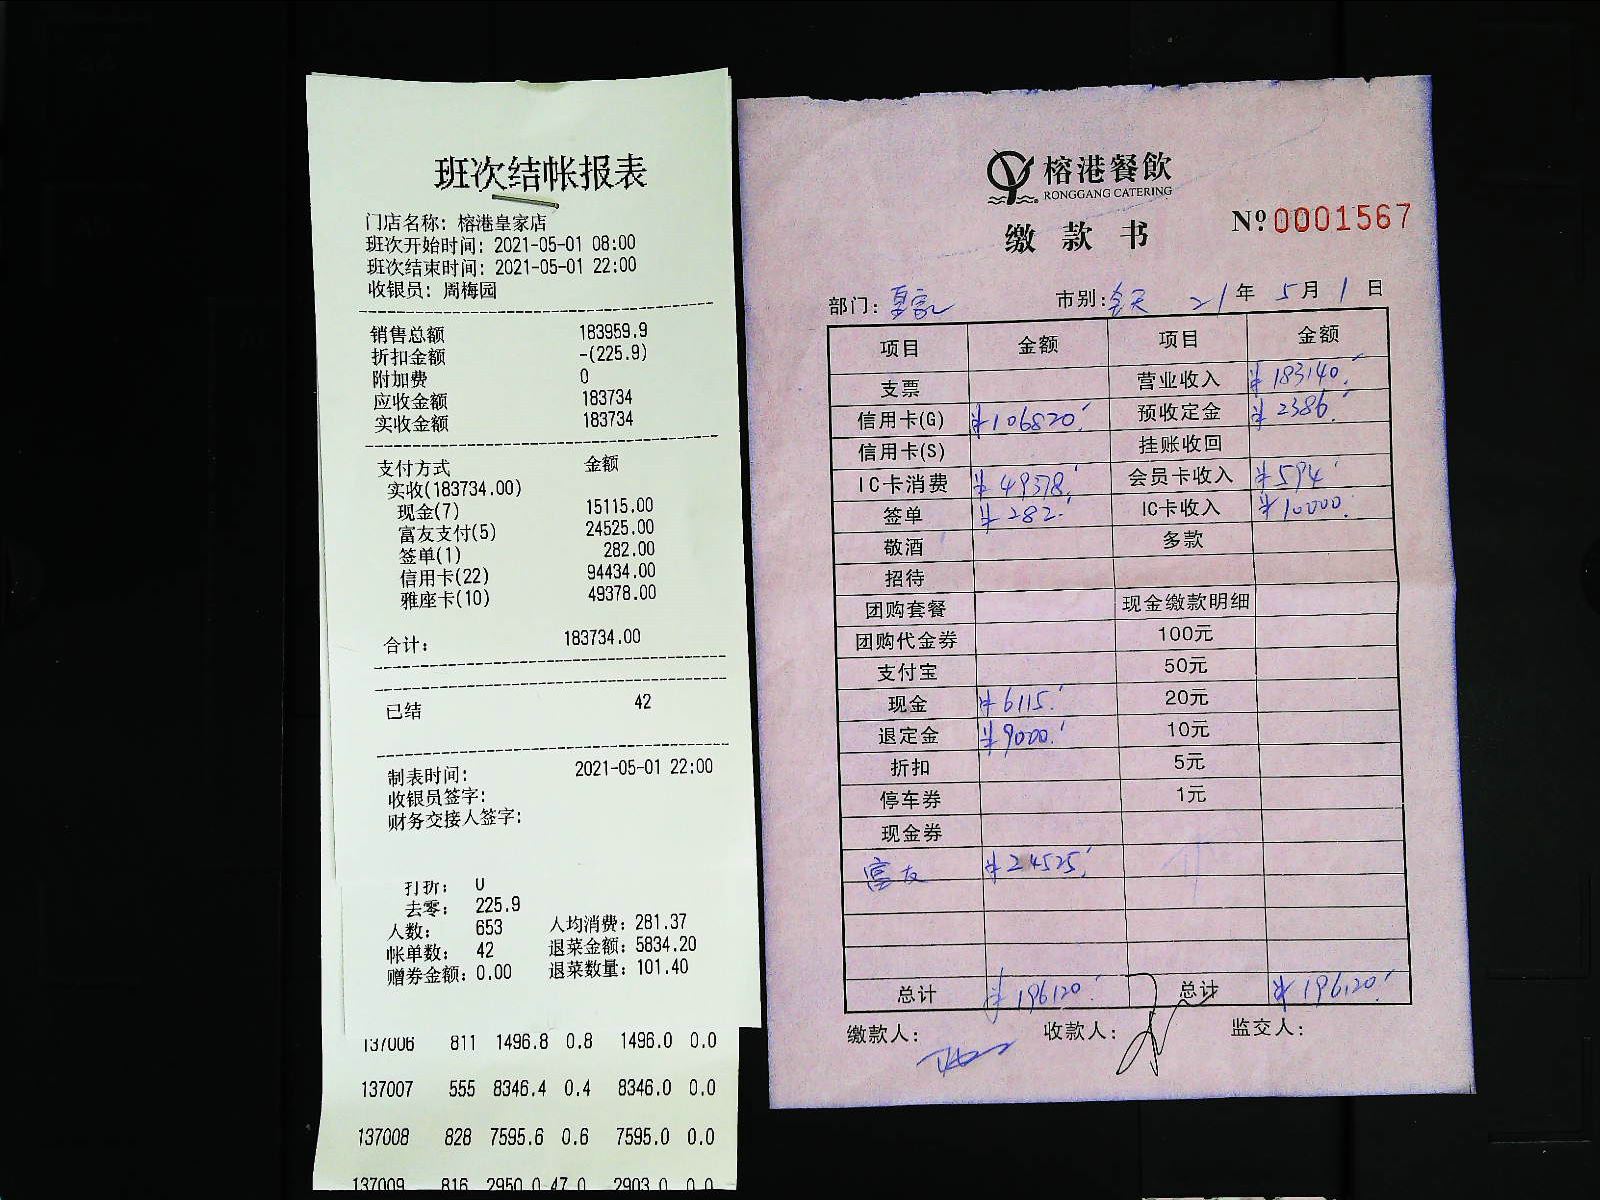 班次结帐报表
门店名称: 榕港皇家店
班次开始时间: 2021-05-01 08:00
班次结束时间: 2021-05-01 22:00
收银员: 周梅园
销售总额 183959.9
折扣金额 -(225.9)
附加费 0
应收金额 183734
实收金额 183734
支付方式 金额
实收(183734.00)
现金(7) 15115.00
富友支付(5) 24525.00
签单(1) 282.00
信用卡(22) 94434.00
雅座卡(10) 49378.00
合计: 183734.00
已结 42
制表时间: 2021-05-01 22:00
收银员签字:
财务交接人签字:
打折: 0
去零: 225.9
人数: 653 人均消费: 281.37
帐单数: 42 退菜金额: 5834.20
赠券金额: 0.00 退菜数量: 101.40
137006 811 1496.8 0.8 1496.0 0.0
137007 555 8346.4 0.4 8346.0 0.0
137008 828 7595.6 0.6 7595.0 0.0
137009 816 2950.0 47.0 2903.0 0.0
榕港餐飲
RONGGANG CATERING
缴款书
Nº 0001567
部门: 皇家 市别: 全天 21年 5月 1日
项目 金额 项目 金额
支票 营业收入 ¥183140.
信用卡(G) ¥106820. 预收定金 ¥2386.
信用卡(S) 挂账收回
IC卡消费 ¥49378. 会员卡收入 ¥594
签单 ¥282. IC卡收入 ¥10000.
敬酒 多款
招待
团购套餐 现金缴款明细
团购代金券 100元
支付宝 50元
现金 ¥6115. 20元
退定金 ¥9000. 10元
折扣 5元
停车券 1元
现金券
富友 ¥24525.
总计 ¥196120. 总计 ¥196120.
缴款人: 收款人: 监交人: